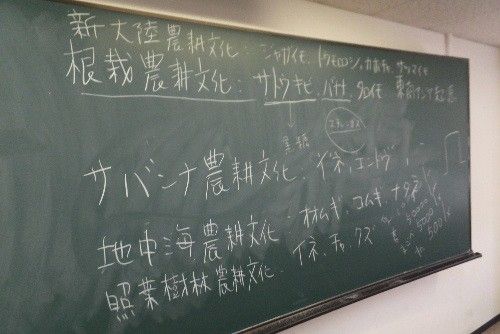 新大陸農耕文化：ジャガイモ、トウモロコシ、カボチャ、サツマイモ
根栽農耕文化：サトウキビ、バナナ、タロイモ 東南アジア起源
黒糖
サバンナ農耕文化：イネ、エンドウ
地中海農耕文化：オオムギ、コムギ、ナタネ
照葉樹林農耕文化：イネ、チャ、クズ
5000